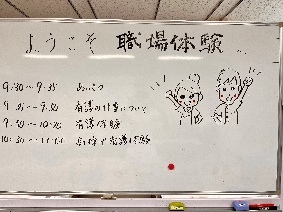 ようこそ 職場体験
9:30〜9:35 あいさつ
9:35〜9:50 看護の仕事について
9:50〜10:30 看護体験
10:30〜11:00